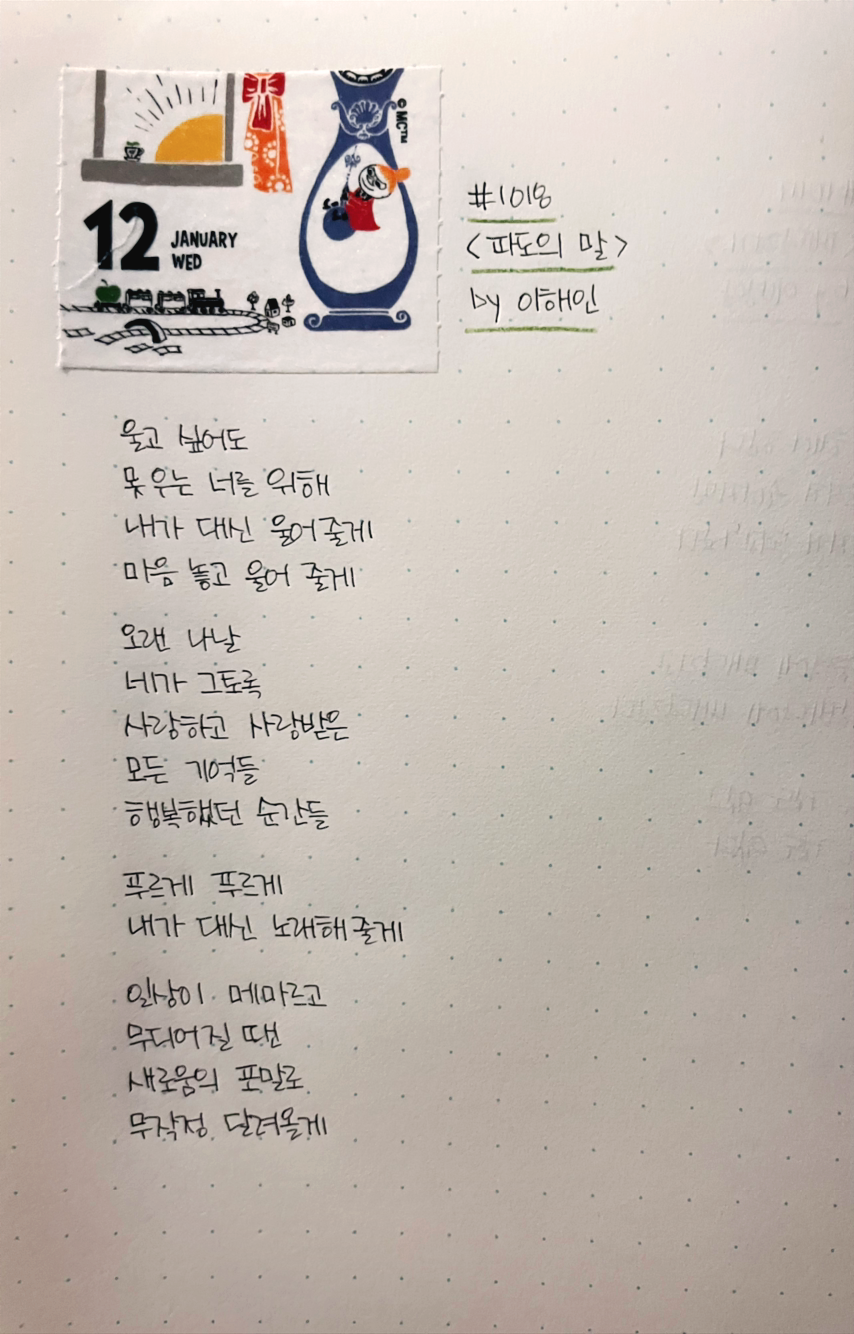 © MC™
12 JANUARY
WED
#1018
<파도의 말>
by 이해인
울고 싶어도
못 우는 너를 위해
내가 대신 울어 줄게
마음 놓고 울어 줄게
오랜 나날
네가 그토록
사랑하고 사랑받은
모든 기억들
행복했던 순간들
푸르게 푸르게
내가 대신 노래해 줄게
일상이 메마르고
무디어질 땐
새로움의 포말로
무작정 달려올게